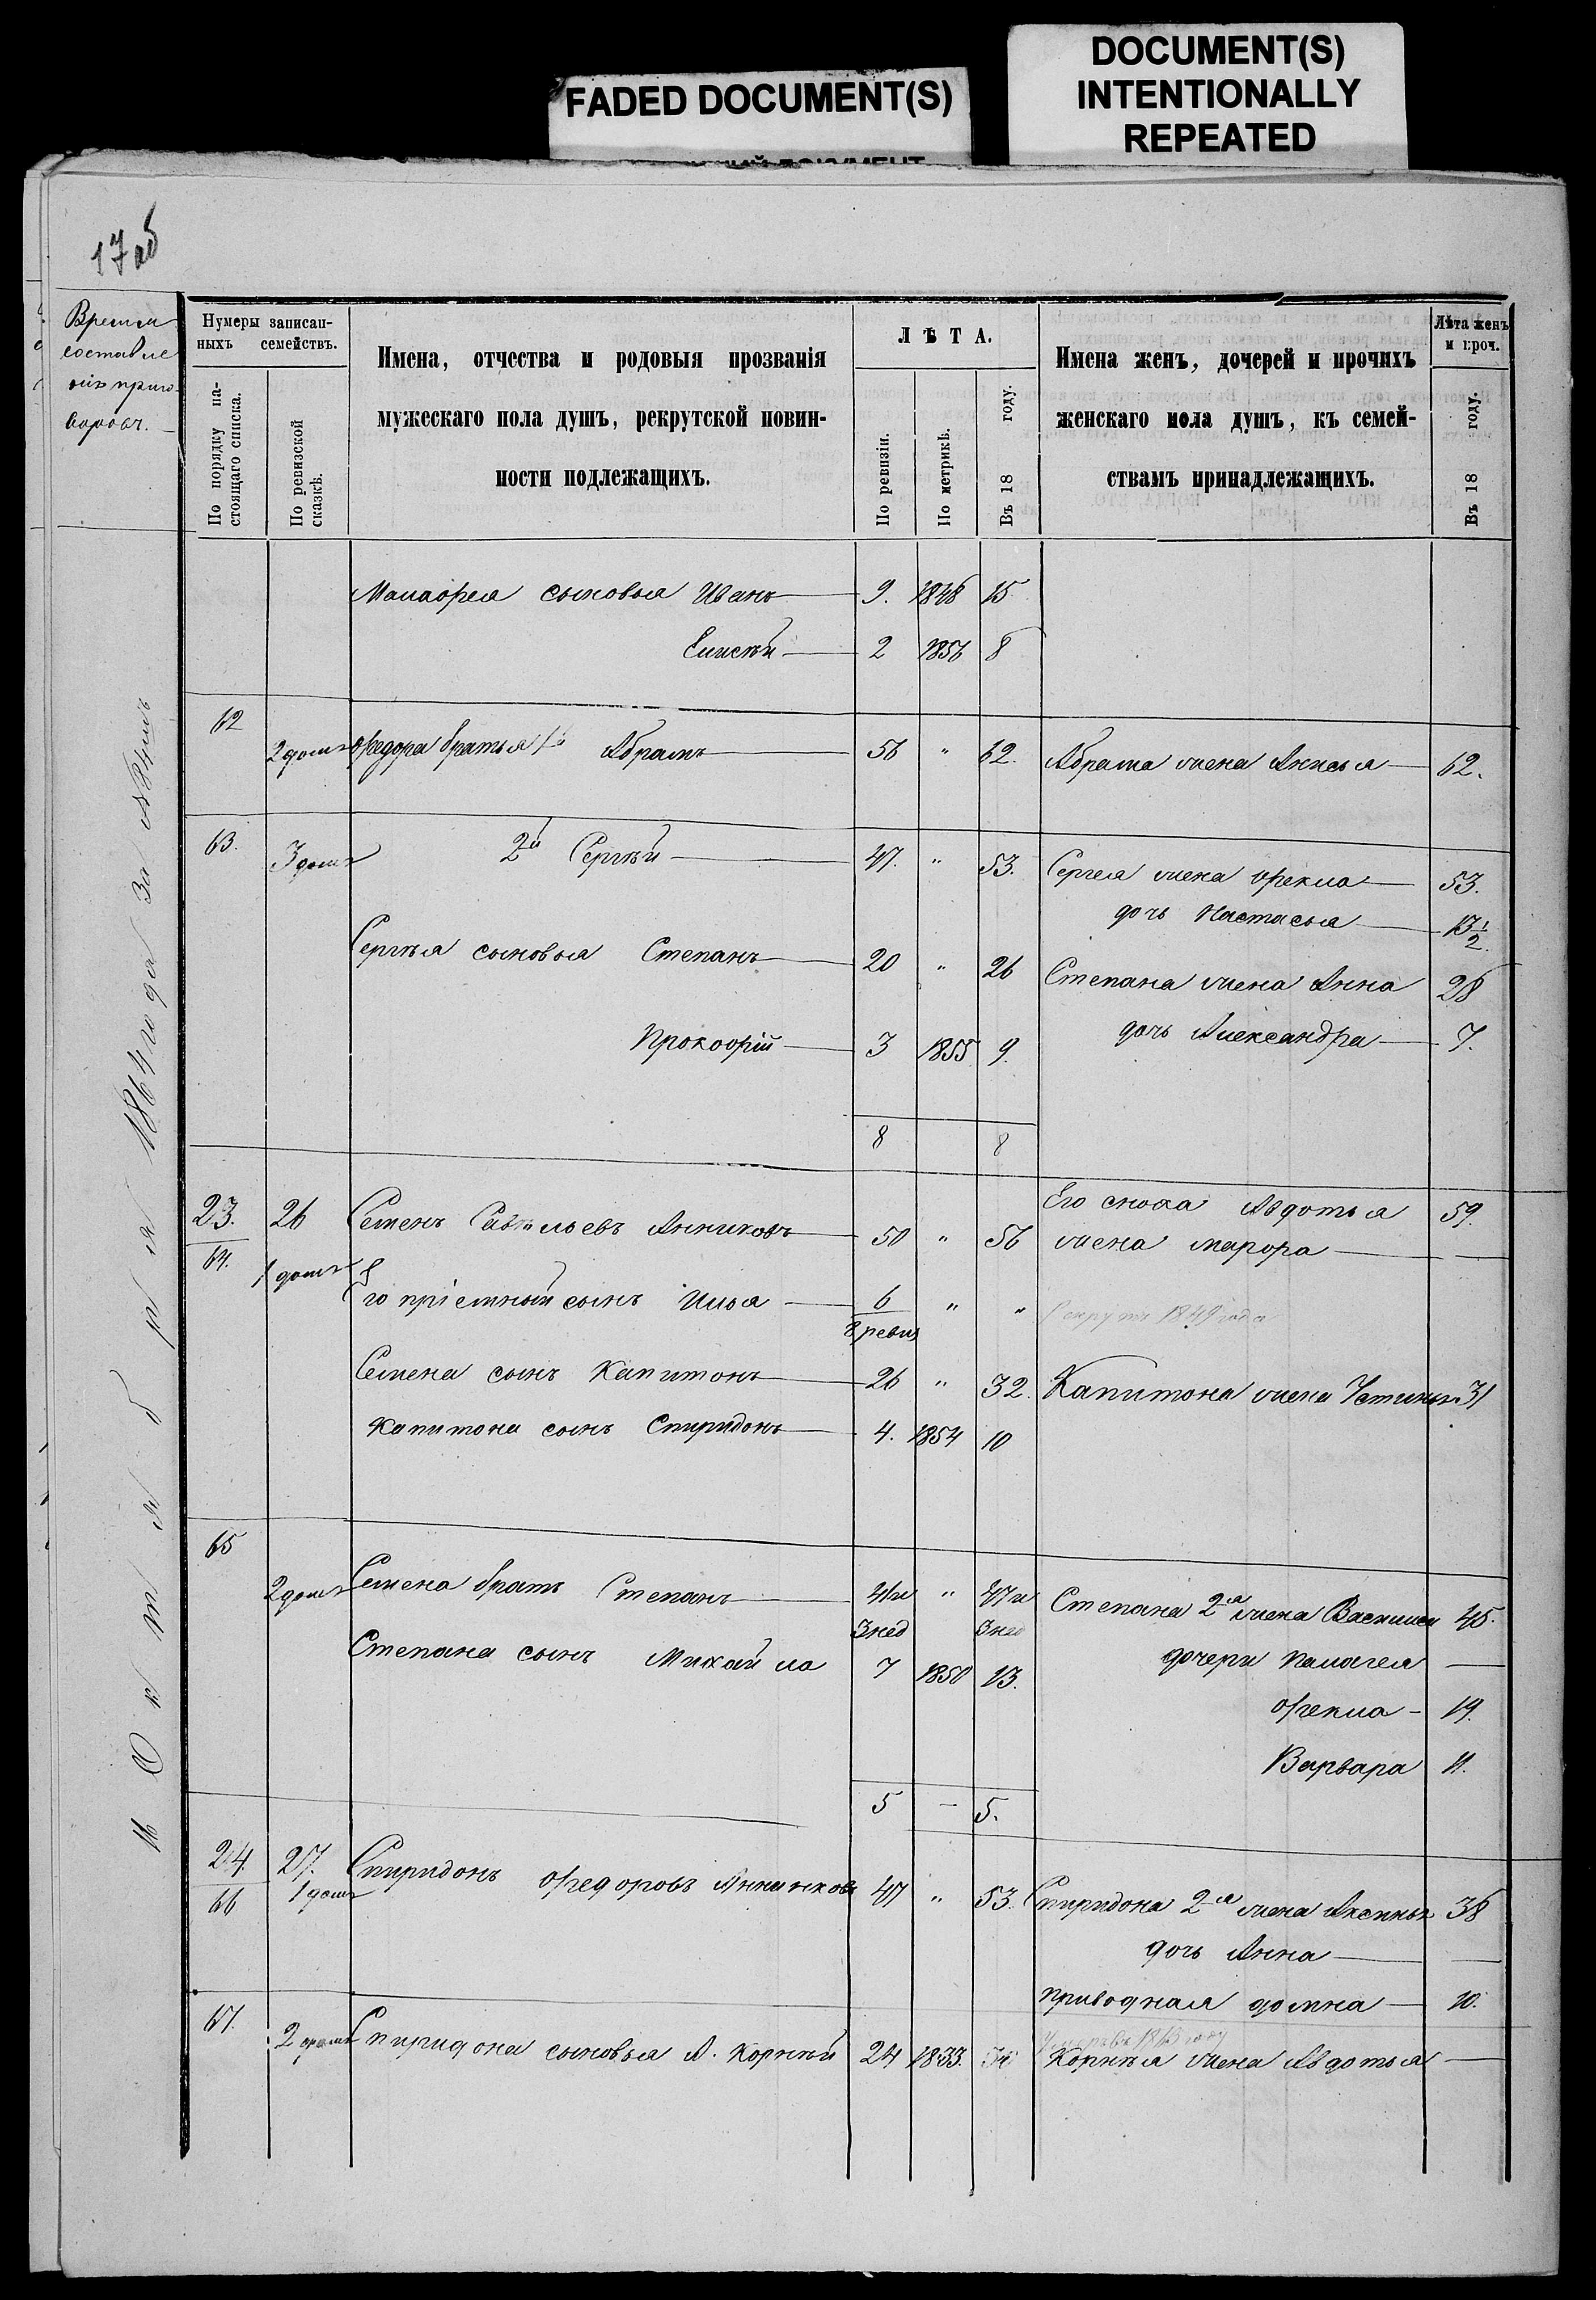 FADED DOCUMENT(S)
DOCUMENT(S)
INTENTIONALLY
REPEATED
17 об
Время
составле
нія приго-
воровъ.
Нумеры записан-
ныхъ семействъ.
По порядку на-
стоящаго списка.
По ревизской
сказкѣ.
Имена, отчества и родовыя прозванія
мужескаго пола душъ, рекрутской повин-
ности подлежащихъ.
ЛѢТА.
По ревизіи.
По метрикѣ.
Въ 18 году.
Имена женъ, дочерей и прочихъ
женскаго пола душъ, къ семей-
ствамъ принадлежащихъ.
Лѣта женъ
и проч.
Въ 18 году.
16 Октября 1864 года за №
сыновья Иванъ 9. 1848 15
Елисѣй 2 1856 8
62 2 домъ Федора братья 1й Абрамъ 56 " 62. Абрама жена Анисья 62.
63. 3 домъ 2й Сергѣй 47. " 53. Сергея жена Фекла 53.
дочь Настасья 13 1/2
Сергѣя сыновья Степанъ 20 " 26 Степана жена Анна 28
Прокофій 3 1855 9. дочь Александра 7.
8 8
23. 26 Его сноха Авдотья 59.
64. 1 домъ Семенъ Савельевъ Анниковъ 50 " 56 жена Марфа —
Его пріемный сынъ Илья 6 " " Рекрутъ 1849 года
8 ревиз
Семена сынъ Капитонъ 26 " 32. Капитона жена Устинья 31
Капитона сынъ Спиридонъ 4. 1854 10
65 2 домъ Семена братъ Степанъ 41 и " 47 и Степана 2я жена Василиса 45.
3 нед 3 нед
Степана сынъ Михайла 7 1850 13. дочери Пелагея —
Фекла - 19.
Варвара 11.
5 — 5.
24. 27. Спиридонъ Федоровъ Анниковъ 47 " 53. Спиридона 2я жена Аксинья 38
66 1 домъ дочь Анна —
приводная Домна 10.
67. 2 домъ Спиридона сыновья А. Корнѣй 24 1833. Корнѣя жена Авдотья —